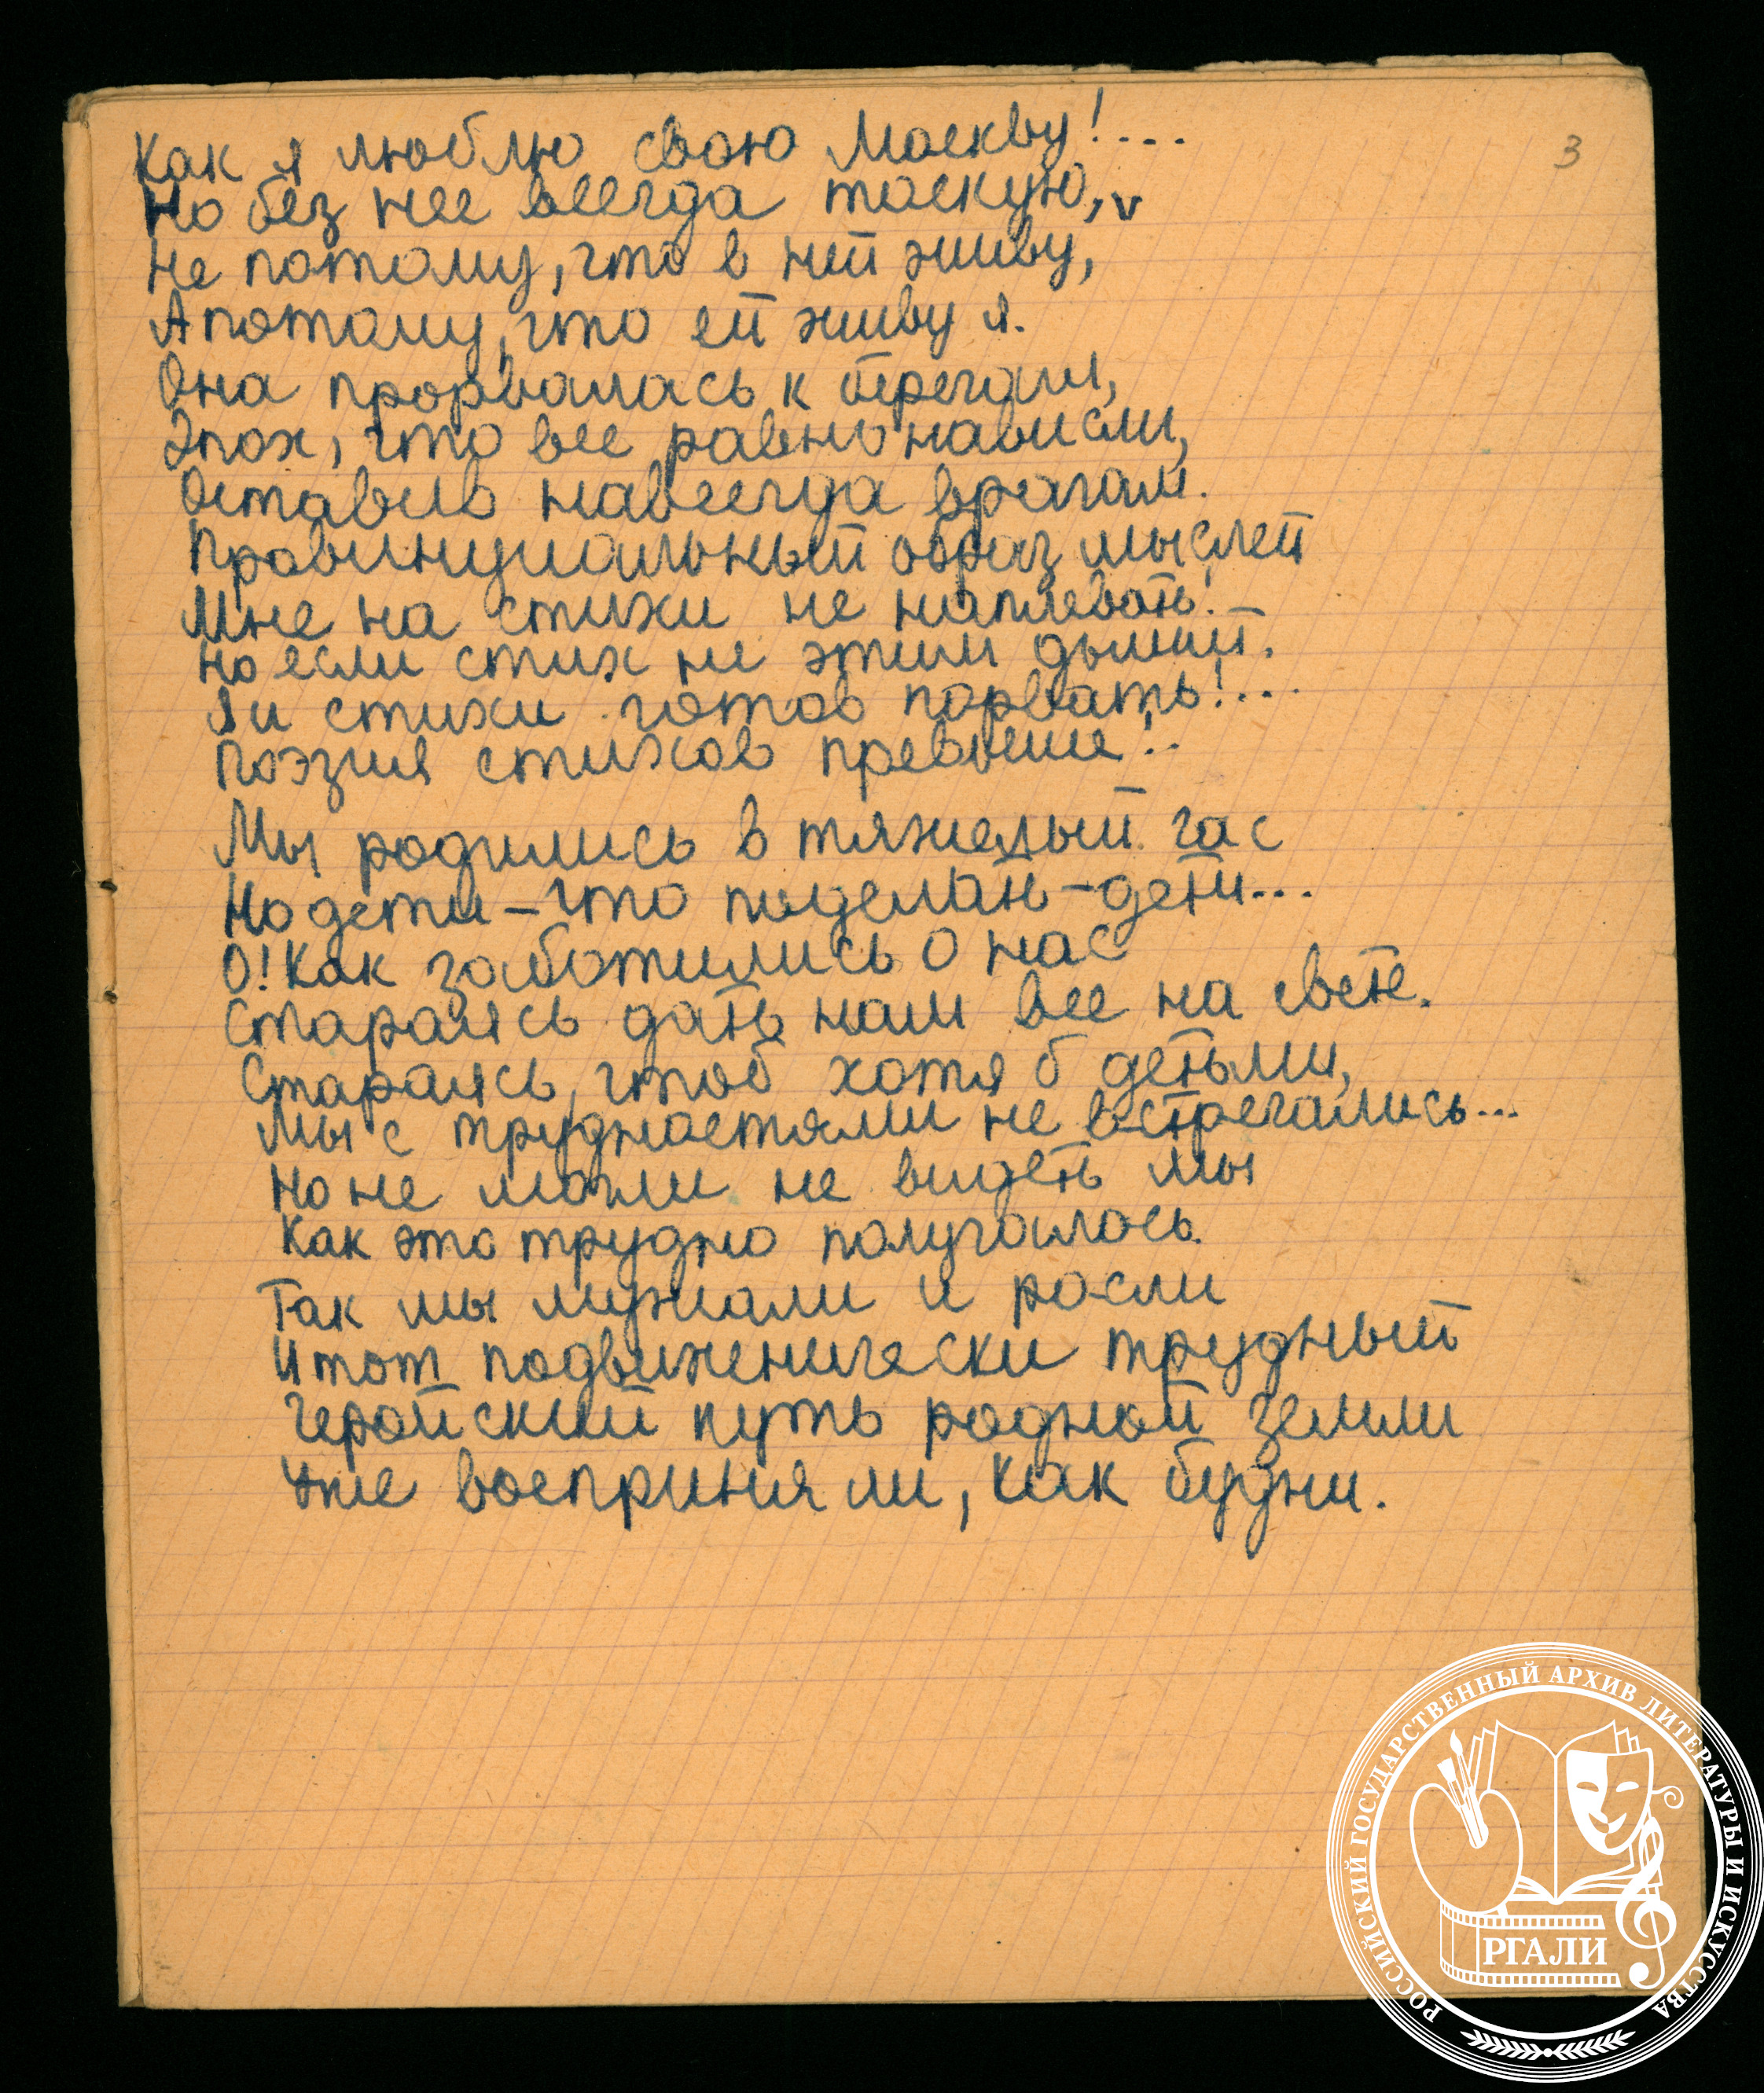 3
Как я люблю свою Москву!....
Но без нее всегда тоскую,
Не потому, что в ней живу,
А потому, что ей живу я.
Она прорвалась к берегам,
Эпох, что все равно нависли,
Оставив навсегда врагам.
Провинциальный образ мыслей
Мне на стихи не наплевать!
Но если стих не этим дышит.
Я и стихи готов порвать!...
Поэзия стихов превыше!..
Мы родились в тяжелый час
Но дети – что поделать – дети...
О! Как заботились о нас
Стараясь дать нам все на свете.
Стараясь, чтоб хотя б детьми,
Мы с трудностями не встречались...
Но не могли не видеть мы
Как это трудно получалось.
Так мы мужали и росли
И тот подвиженически трудный
Геройский путь родной земли
Уже восприняли, как будни.
РОССИЙСКИЙ ГОСУДАРСТВЕННЫЙ АРХИВ ЛИТЕРАТУРЫ И ИСКУССТВА
РГАЛИ